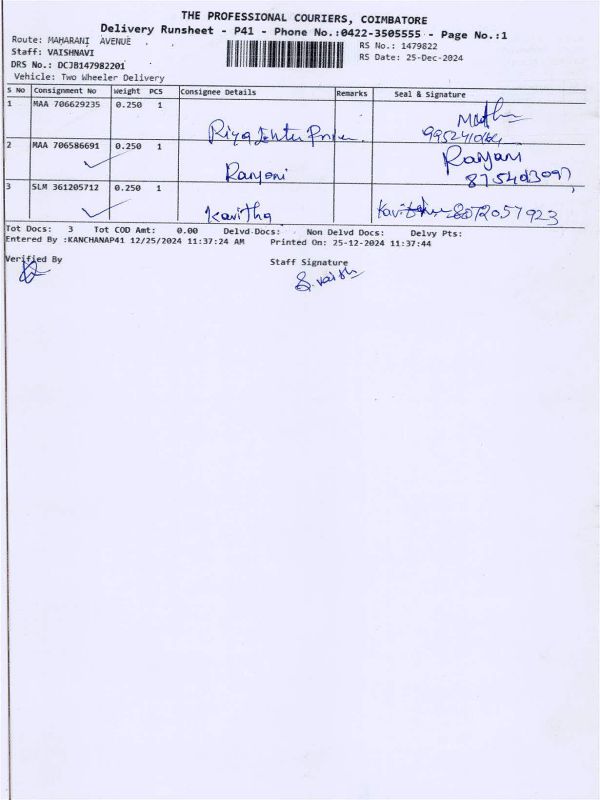 THE PROFESSIONAL COURIERS, COIMBATORE
Delivery Runsheet - P41 - Phone No.:0422-3505555 - Page No.:1
Route: MAHARANI AVENUE
RS No.: 1479822
Staff: VAISHNAVI
RS Date: 25-Dec-2024
DRS No.: DCJB147982201
Vehicle: Two Wheeler Delivery
S No Consignment No Weight PCS Consignee Details Remarks Seal & Signature
1 MAA 706629235 0.250 1
Riya
2 MAA 706586691 0.250 1
Ranjani Ranjani
3 SLM 361205712 0.250 1
Kavitha 8072057923
Tot Docs: 3 Tot COD Amt: 0.00 Delvd Docs: Non Delvd Docs: Delvy Pts:
Entered By :KANCHANAP41 12/25/2024 11:37:24 AM Printed On: 25-12-2024 11:37:44
Verified By
Staff Signature
S. Vaish